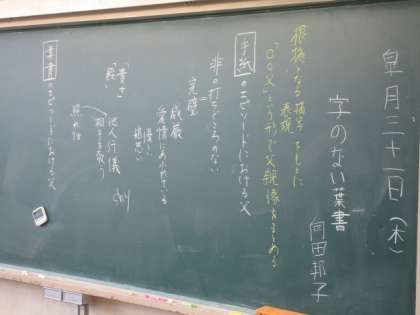 皐月三十一日（木）
字のない葉書
向田邦子
根拠となる描写をもとに
表現
「○○父」という形で父親像をまとめる
手紙のエピソードにおける父
非の打ちどころのない
完璧＝
威厳
愛情にあふれている
優しい
「貴さ」
「殿」
他人行儀
相手を敬う
照れ性
shy
葉書のエピソードにおける父